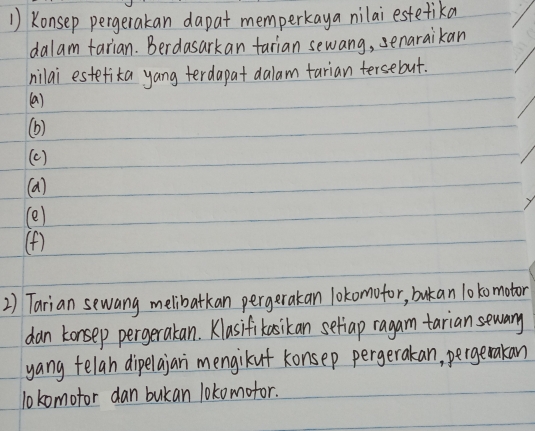 1) Konsep pergerakan dapat memperkaya nilai estetika
dalam tarian. Berdasarkan tarian sewang, senaraikan
nilai estetika yang terdapat dalam tarian tersebut.
(a)
(b)
(c)
(d)
(e)
(f)
2) Tarian sewang melibatkan pergerakan lokomotor, bukan lokomotor
dan konsep pergerakan. Klasifikasikan setiap ragam tarian sewang
yang telah dipelajari mengikut konsep pergerakan, pergerakan
lokomotor dan bukan lokomotor.